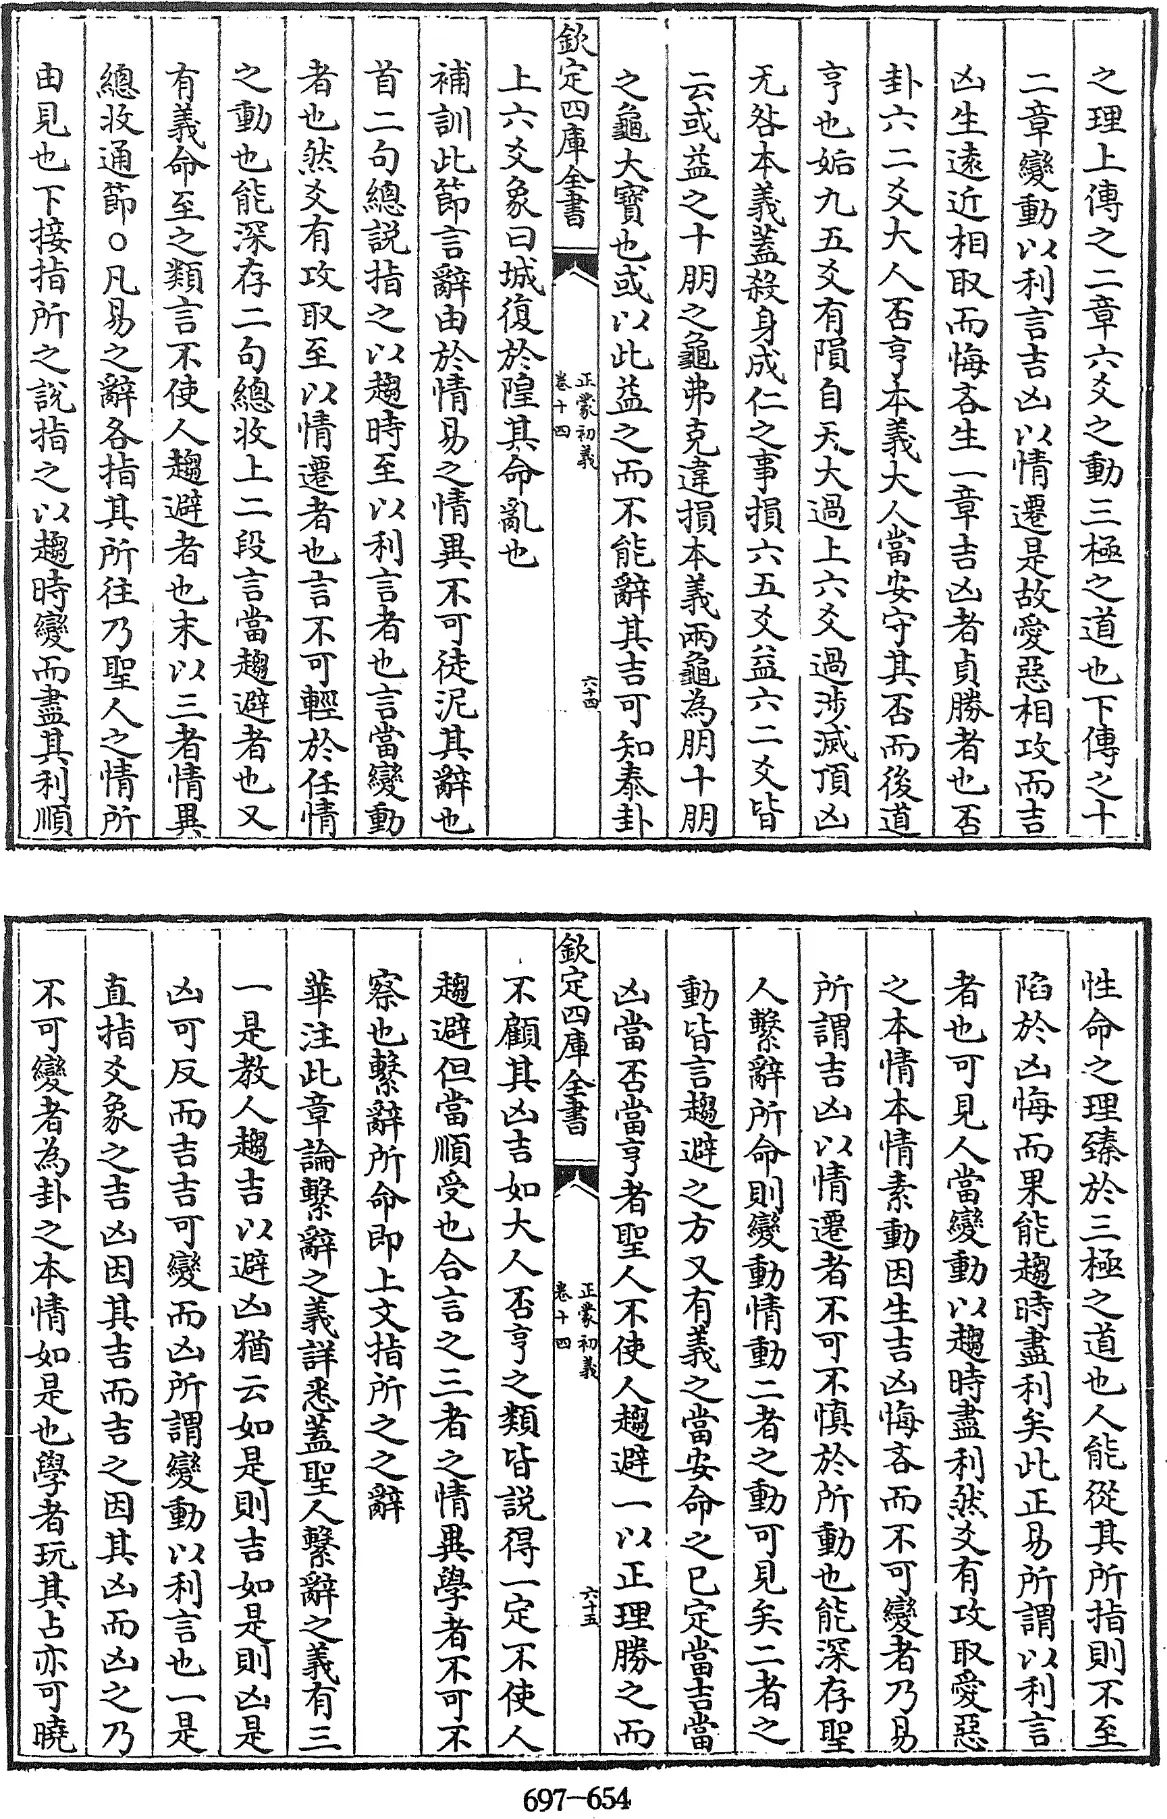 之理上傳之二章六爻之動三極之道也下傳之十
二章變動以利言吉凶以情遷是故愛惡相攻而吉
凶生遠近相取而悔吝生一章吉凶者貞勝者也否
卦六二爻大人否亨本義大人當安守其否而後道
亨也姤九五爻有隕自天大過上六爻過涉滅頂凶
无咎本義蓋殺身成仁之事損六五爻益六二爻皆
云或益之十朋之龜弗克違損本義兩龜為朋十朋
之龜大寶也或以此益之而不能辭其吉可知泰卦
欽定四庫全書
正蒙初義
卷十四
六十四
上六爻象曰城復於隍其命亂也
補訓此節言辭由於情易之情異不可徒泥其辭也
首二句總説指之以趨時至以利言者也言當變動
者也然爻有攻取至以情遷者也言不可輕於任情
之動也能深存二句總收上二段言當趨避者也又
有義命至之類言不使人趨避者也末以三者情異
總收通節○凡易之辭各指其所往乃聖人之情所
由見也下接指所之説指之以趨時變而盡其利順
性命之理臻於三極之道也人能從其所指則不至
陷於凶悔而果能趨時盡利矣此正易所謂以利言
者也可見人當變動以趨時盡利然爻有攻取愛惡
之本情本情素動因生吉凶悔吝而不可變者乃易
所謂吉凶以情遷者不可不慎於所動也能深存聖
人繫辭所命則變動情動二者之動可見矣二者之
動皆言趨避之方又有義之當安命之已定當吉當
凶當否當亨者聖人不使人趨避一以正理勝之而
欽定四庫全書
正蒙初義
卷十四
六十五
不顧其凶吉如大人否亨之類皆説得一定不使人
趨避但當順受也合言之三者之情異學者不可不
察也繫辭所命即上文指所之之辭
華注此章論繫辭之義詳悉蓋聖人繫辭之義有三
一是教人趨吉以避凶猶云如是則吉如是則凶是
凶可反而吉吉可變而凶所謂變動以利言也一是
直指爻象之吉凶因其吉而吉之因其凶而凶之乃
不可變者為卦之本情如是也學者玩其占亦可曉
697-654